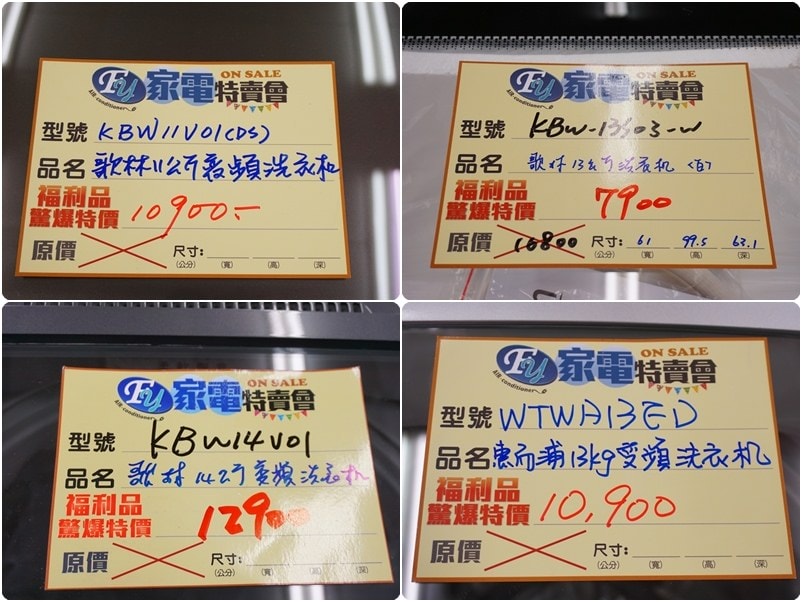 FY 家電特賣會 ON SALE
AIR conditioner
型號 KBW11V01(DS)
品名 歌林11公斤变頻洗衣机
福利品
驚爆特價 10900.-
原價 尺寸:
(公分) (寬) (高) (深)
FY 家電特賣會 ON SALE
AIR conditioner
型號 KBW-13S03-W
品名 歌林13公斤洗衣机(白)
福利品
驚爆特價 7900
原價 10800 尺寸: 61 99.5 63.1
(公分) (寬) (高) (深)
FY 家電特賣會 ON SALE
AIR conditioner
型號 KBW14V01
品名 歌林14公斤变頻洗衣机
福利品
驚爆特價 12900
原價 尺寸:
(公分) (寬) (高) (深)
FY 家電特賣會 ON SALE
AIR conditioner
型號 WTWA13ED
品名 惠而浦13kg变頻洗衣机
福利品
驚爆特價 10,900
原價 尺寸:
(公分) (寬) (高) (深)